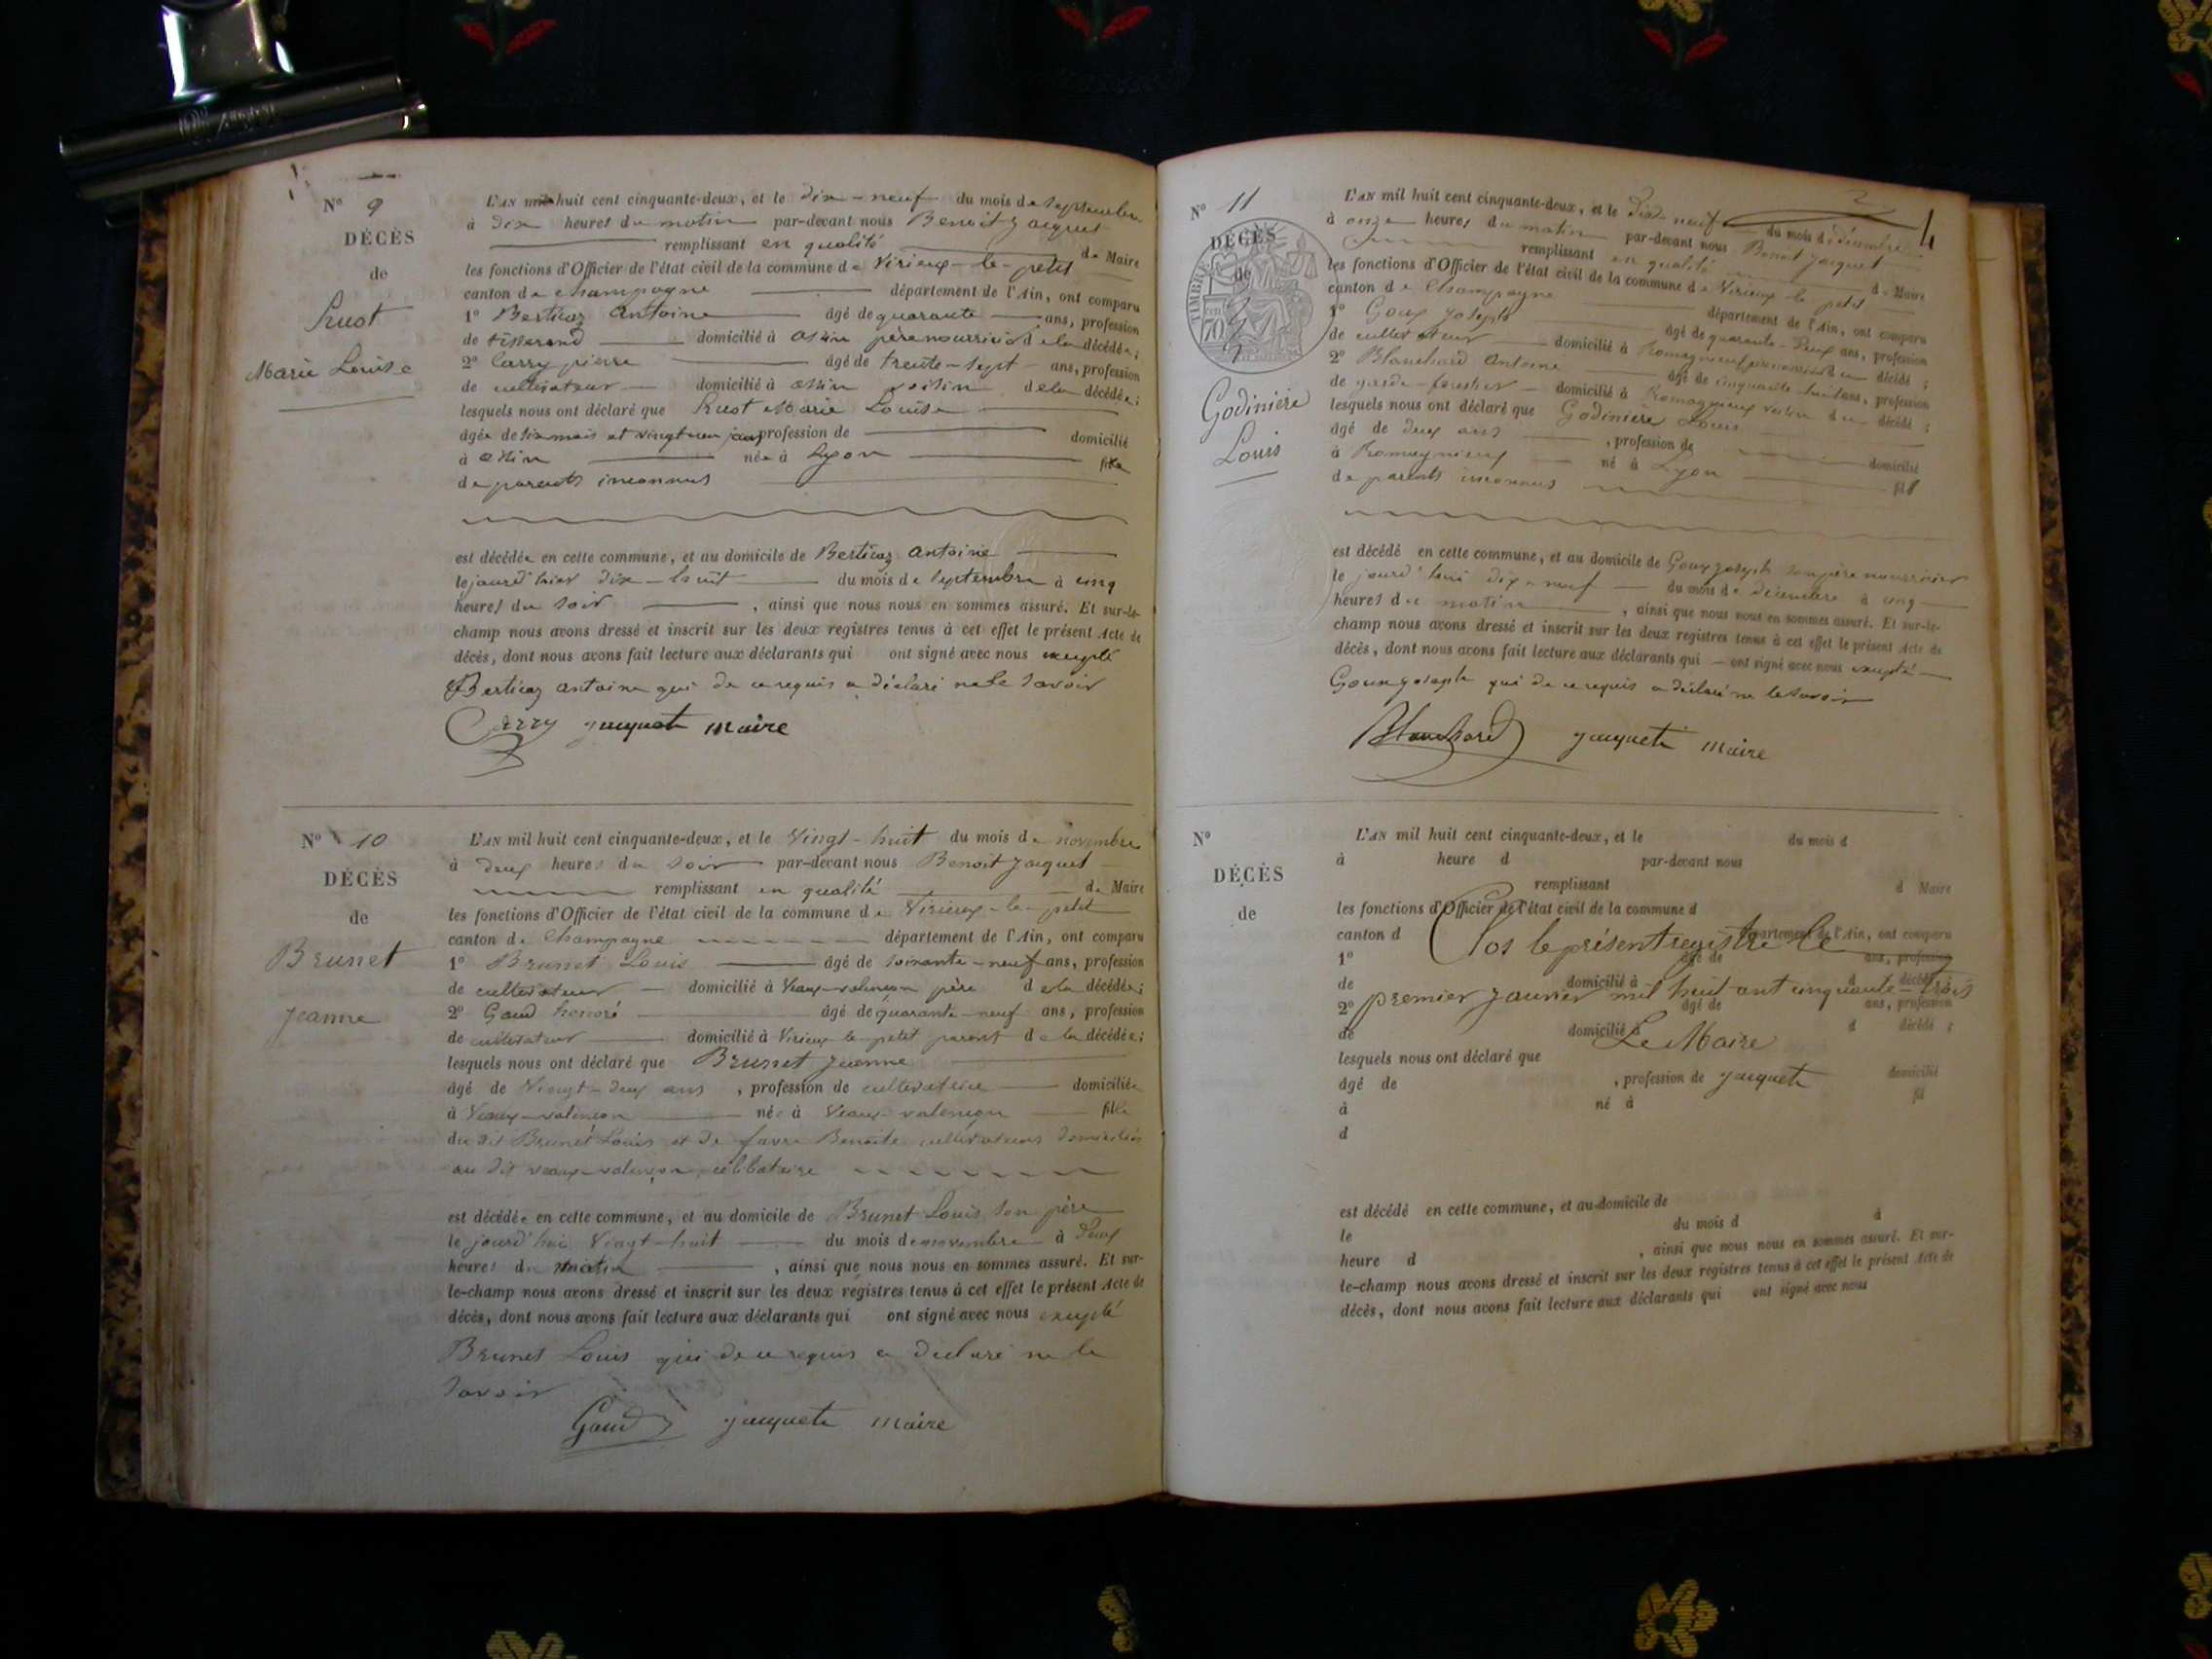 N° 9
DÉCÈS
de
Rust
Marie Louise
L'AN mil huit cent cinquante-deux, et le dix-neuf du mois de septembre
à dix heures du matin par-devant nous Benoit Jacquet
remplissant en qualité de Maire
les fonctions d'Officier de l'état civil de la commune de Virieux-le-petit
canton de Champagne département de l'Ain, ont comparu
1° Berticoz Antoine âgé de quarante ans, profession
de tisserand domicilié à père nourricier de la décédée;
2° Carry pierre âgé de trente-sept ans, profession
de cultivateur domicilié à voisin de la décédée;
lesquels nous ont déclaré que Rust Marie Louise
âgée de six mois et vingt jours profession de domicilié
à née à Lyon fille
de parents inconnus
est décédée en cette commune, et au domicile de Berticoz Antoine
le jourd'hier dix-huit du mois de septembre à cinq
heures du soir, ainsi que nous nous en sommes assuré. Et sur-le-
champ nous avons dressé et inscrit sur les deux registres tenus à cet effet le présent Acte de
décès, dont nous avons fait lecture aux déclarants qui ont signé avec nous excepté
Berticoz Antoine qui de ce requis a déclaré ne le savoir
Carry jacquet maire
N° 10
DÉCÈS
de
Brunet
Jeanne
L'AN mil huit cent cinquante-deux, et le Vingt-huit du mois de novembre
à deux heures du soir par-devant nous Benoit Jacquet
remplissant en qualité de Maire
les fonctions d'Officier de l'état civil de la commune de Virieux-le-petit
canton de Champagne département de l'Ain, ont comparu
1° Brunet Louis âgé de soixante-neuf ans, profession
de cultivateur domicilié à Veaux-valençon père de la décédée;
2° Gaud honoré âgé de quarante-neuf ans, profession
de cultivateur domicilié à Virieux le petit parent de la décédée;
lesquels nous ont déclaré que Brunet Jeanne
âgé de Vingt-deux ans, profession de cultivatrice domiciliée
à Veaux-valençon née à Veaux-valençon fille
du dit Brunet Louis et de favre Benoite cultivateurs domiciliés
au dit veaux-valençon, célibataire
est décédée en cette commune, et au domicile de Brunet Louis son père
le jourd'hui Vingt-huit du mois de novembre à deux
heures du matin, ainsi que nous nous en sommes assuré. Et sur-
le-champ nous avons dressé et inscrit sur les deux registres tenus à cet effet le présent Acte de
décès, dont nous avons fait lecture aux déclarants qui ont signé avec nous excepté
Brunet Louis qui de ce requis a déclaré ne le
savoir
Gaud jacquet maire
N° 11
4
DÉCÈS
de
TIMBRE
70
Godinière
Louis
L'AN mil huit cent cinquante-deux, et le dix-neuf du mois de décembre
à onze heures du matin par-devant nous Benoit Jacquet
remplissant en qualité de Maire
les fonctions d'Officier de l'état civil de la commune de Virieux-le-petit
canton de Champagne département de l'Ain, ont comparu
1° Goux Joseph âgé de quarante-deux ans, profession
de cultivateur domicilié à Romagnieux père nourricier du décédé;
2° Blanchard Antoine âgé de cinquante huit ans, profession
de garde-forestier domicilié à Romagnieux voisin du décédé;
lesquels nous ont déclaré que Godinière Louis
âgé de deux ans, profession de domicilié
à Romagnieux né à Lyon fils
de parents inconnus
est décédé en cette commune, et au domicile de Goux Joseph son père nourricier
le jourd'hui dix-neuf du mois de décembre à cinq
heures du matin, ainsi que nous nous en sommes assuré. Et sur-le-
champ nous avons dressé et inscrit sur les deux registres tenus à cet effet le présent Acte de
décès, dont nous avons fait lecture aux déclarants qui ont signé avec nous excepté
Goux Joseph qui de ce requis a déclaré ne le savoir
Blanchard jacquet maire
N°
DÉCÈS
de
L'AN mil huit cent cinquante-deux, et le du mois d
à heure d par-devant nous
remplissant d Maire
les fonctions d'Officier de l'état civil de la commune d
canton d département de l'Ain, ont comparu
Clos le présent registre le
1° âgé de ans, profession
de domicilié à d décédé
premier janvier mil huit cent cinquante-trois
2° âgé de ans, profession
de domicilié à d décédé;
Le Maire
lesquels nous ont déclaré que
âgé de, profession de domicilié
jacquet
à né à fil
d
est décédé en cette commune, et au domicile de
le du mois d à
heure d, ainsi que nous nous en sommes assuré. Et sur-
le-champ nous avons dressé et inscrit sur les deux registres tenus à cet effet le présent Acte de
décès, dont nous avons fait lecture aux déclarants qui ont signé avec nous